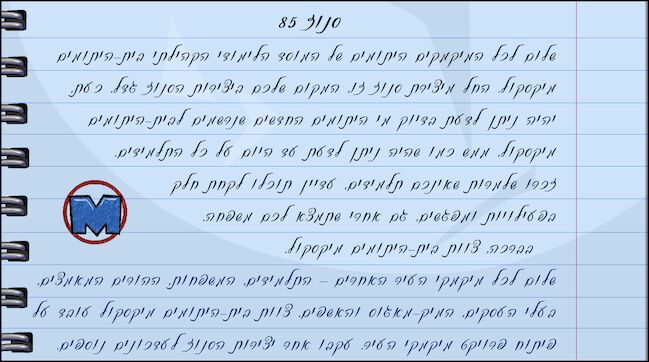 סנוז 85
שלום לכל המיקמקים היתומים של המוסד הלימודי הקהילתי בית-היתומים
מיקסקול. החל מיצירת סנוז זו, המקום שלכם ביצירות הסנוז גדל. כעת,
יהיה ניתן לדעת בדיוק מי היתומים החדשים שנרשמים לבית-היתומים
מיקסקול. ממש כמו שהיה ניתן לדעת עד היום על כל התלמידים.
זכרו שלמרות שאינכם תלמידים, עדיין תוכלו לקחת חלק
בפעילויות ומפגשים, גם אחרי שתמצא לכם משפחה.
בברכה, צוות בית-היתומים מיקסקול.
M
שלום לכל מיקמקי העיר האחרים - התלמידים, המשפחות, ההורים המאמצים,
בעלי העסקים, המיק-מאגוס והאשפים. צוות בית-היתומים מיקסקול עובד על
פיתוח פרויקט מיקמקי העיר. עקבו אחר יצירות הסנוז לעדכונים נוספים.